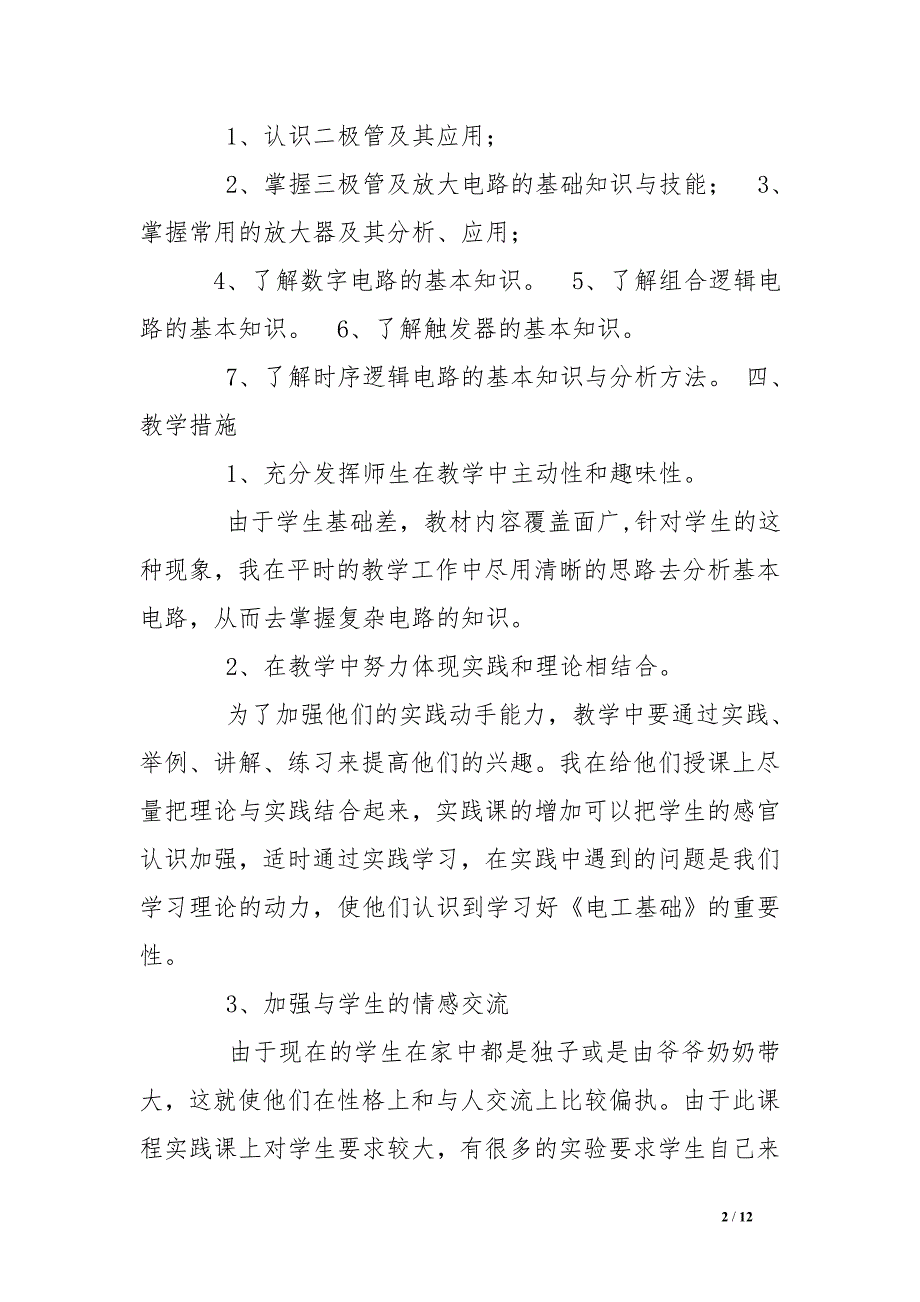 1、认识二极管及其应用；
2、掌握三极管及放大电路的基础知识与技能； 3、
掌握常用的放大器及其分析、应用；
4、了解数字电路的基本知识。 5、了解组合逻辑电
路的基本知识。 6、了解触发器的基本知识。
7、了解时序逻辑电路的基本知识与分析方法。 四、
教学措施
1、充分发挥师生在教学中主动性和趣味性。
由于学生基础差，教材内容覆盖面广,针对学生的这
种现象，我在平时的教学工作中尽用清晰的思路去分析基本
电路，从而去掌握复杂电路的知识。
2、在教学中努力体现实践和理论相结合。
为了加强他们的实践动手能力，教学中要通过实践、
举例、讲解、练习来提高他们的兴趣。我在给他们授课上尽
量把理论与实践结合起来，实践课的增加可以把学生的感官
认识加强，适时通过实践学习，在实践中遇到的问题是我们
学习理论的动力，使他们认识到学习好《电工基础》的重要
性。
3、加强与学生的情感交流
由于现在的学生在家中都是独子或是由爷爷奶奶带
大，这就使他们在性格上和与人交流上比较偏执。由于此课
程实践课上对学生要求较大，有很多的实验要求学生自己来
2 / 12